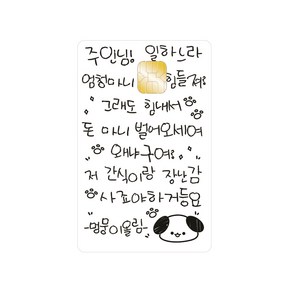 주인님! 일하느라
엄청마니 힘들져?
그래도 힘내서
돈 마니 벌어오세여
왜냐구여?
저 간식이랑 장난감
사죠야하거등요
-멍뭉이올림-